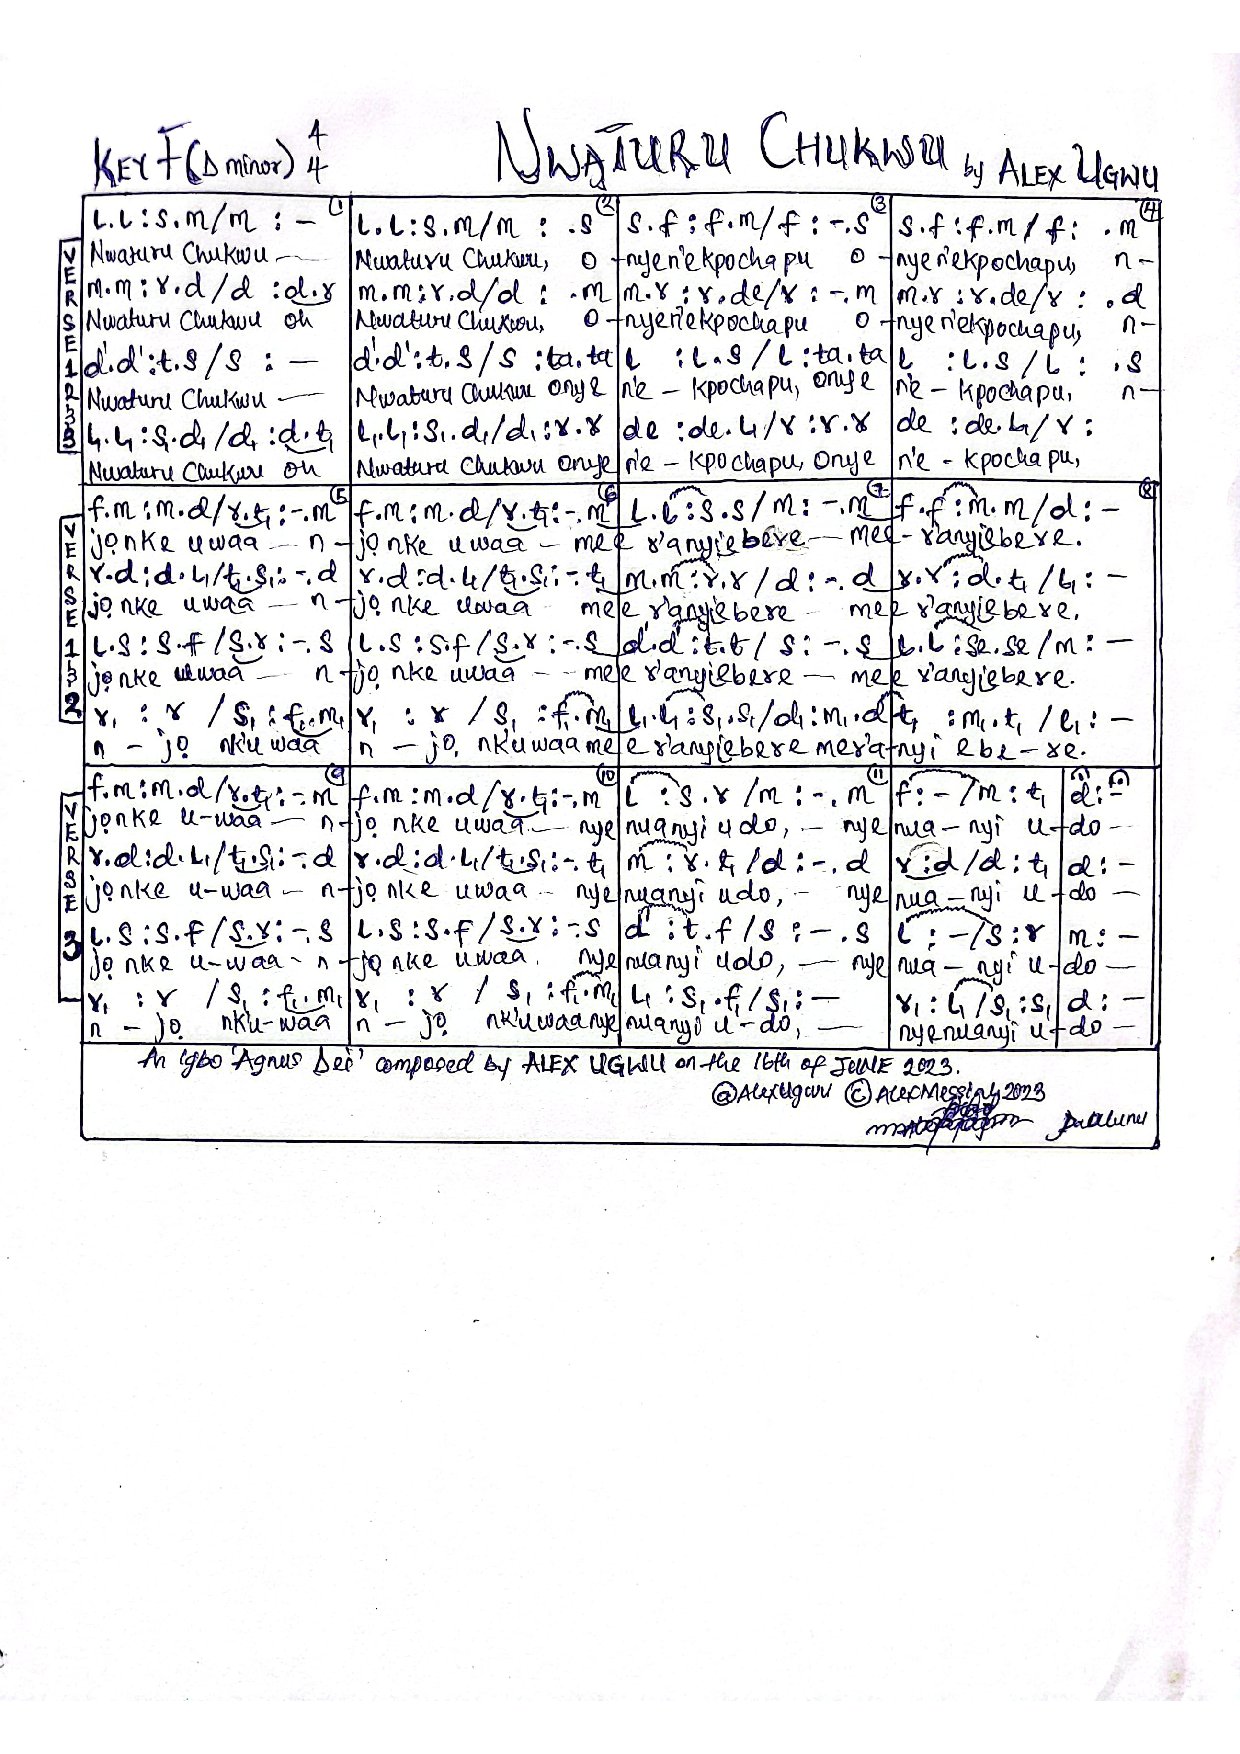 KEY F (D minor) 4/4 NWATURU CHUKWU by ALEX UGWU
VERSE 1 2 & 3
L.L:S.m/m :— (1) L.L:S.m/m : .S (2) S.f:f.m/f:-.S (3) S.f:f.m/f: .m (4)
Nwaturu Chukwu — Nwaturu Chukwu, O - nyen'ekpochapu O - nyen'ekpochapu, n-
m.m:r.d/d :d.r m.m:r.d/d : .m m.r:r.de/r:-.m m.r:r.de/r: .d
Nwaturu Chukwu oh Nwaturu Chukwu, O - nyen'ekpochapu O - nyen'ekpochapu, n-
d'.d':t.S/S :— d'.d':t.S/S :ta.ta L :L.S/L:ta.ta L :L.S/L: .S
Nwaturu Chukwu — Nwaturu Chukwu Onye n'e - kpochapu, Onye n'e - kpochapu, n-
L₁.L₁:S₁.d₁/d₁:d.t₁ L₁.L₁:S₁.d₁/d₁:r.r de :de.L₁/r:r.r de :de.L₁/r:
Nwaturu Chukwu oh Nwaturu Chukwu Onye n'e - kpochapu, Onye n'e - kpochapu,
VERSE 1 & 2
f.m:m.d/r.t₁:-.m (5) f.m:m.d/r.t₁:-.m (6) L.L:S.S/m:-.m (7) f.f:m.m/d:- (8)
jọ nke uwaa — n- jọ nke uwaa - mee r'anyiebere — mee- r'anyiebere.
r.d:d.L₁/t₁.S₁:-.d r.d:d.L₁/t₁.S₁:-.t₁ m.m:r.r/d:-.d r.r:d.t₁/L₁:-
jọ nke uwaa — n- jọ nke uwaa mee r'anyiebere mee r'anyiebere.
L.S:S.f/S.r:-.S L.S:S.f/S.r:-.S d'.d':t.t/S:-.S L.L:se.se/m:—
jọ nke uwaa — n- jọ nke uwaa — mee r'anyiebere — mee r'anyiebere.
r₁ : r /S₁:f₁.m₁ r₁ : r /S₁:f₁.m₁ L₁.L₁:S₁.S₁/d₁:m₁.d t₁ :m₁.t₁/L₁:—
n - jọ nk'uwaa n - jọ nk'uwaa me e r'anyiebere mer'a- nyi ebe-re.
VERSE 3
f.m:m.d/r.t₁:-.m (9) f.m:m.d/r.t₁:-.m (10) L :S.r/m:-.m (11) f:-/m:t₁ d:-
jọ nke u-waa — n- jọ nke uwaa — nye nuanyi udo, — nye nua-nyi u-do -
r.d:d.L₁/t₁.S₁:-.d r.d:d.L₁/t₁.S₁:-.t₁ m :r.t₁/d:-.d r:d/d:t₁ d:-
jọ nke u-waa — n- jọ nke uwaa - nye nuanyi udo, - nye nua-nyi u-do —
L.S:S.f/S.r:-.S L.S:S.f/S.r:-.S d' :t.f/S:-.S L:-/S:r m:-
jọ nke u-waa - n- jọ nke uwaa. nye nuanyi udo, — nye nua- nyi u-do —
r₁ : r /S₁:f₁.m₁ r₁ : r /S₁:f₁.m₁ L₁ :S₁.f₁/S₁:— r₁:L₁/S₁:S₁ d:-
n - jọ nk'u-waa n - jọ nk'uwaa nye nuanyi u-do, — nyenuanyi u-do —
An igbo 'Agnus Dei' composed by ALEX UGWU on the 16th of JUNE 2023.
@AlexUgwu ©AlexMessiny2023